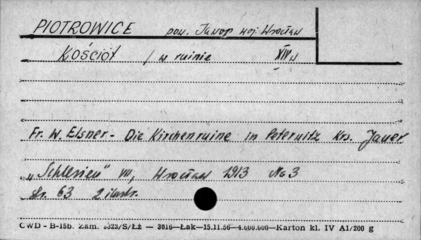 PIOTROWICE pow. Jawor woj. Wrocław
Kościół / w ruinie XIV w
Fr. W. Elsner - Die Kirchenruine in Peterwitz Krs. Jauer
„Schlesien" VII, Wrocław 1913 No 3
str. 63 2 ilustr.
CWD - B-15b. Zam. 5323/S/Łż — 3016—Łak—15.11.56—4.000.000—Karton kl. IV A1/200 g